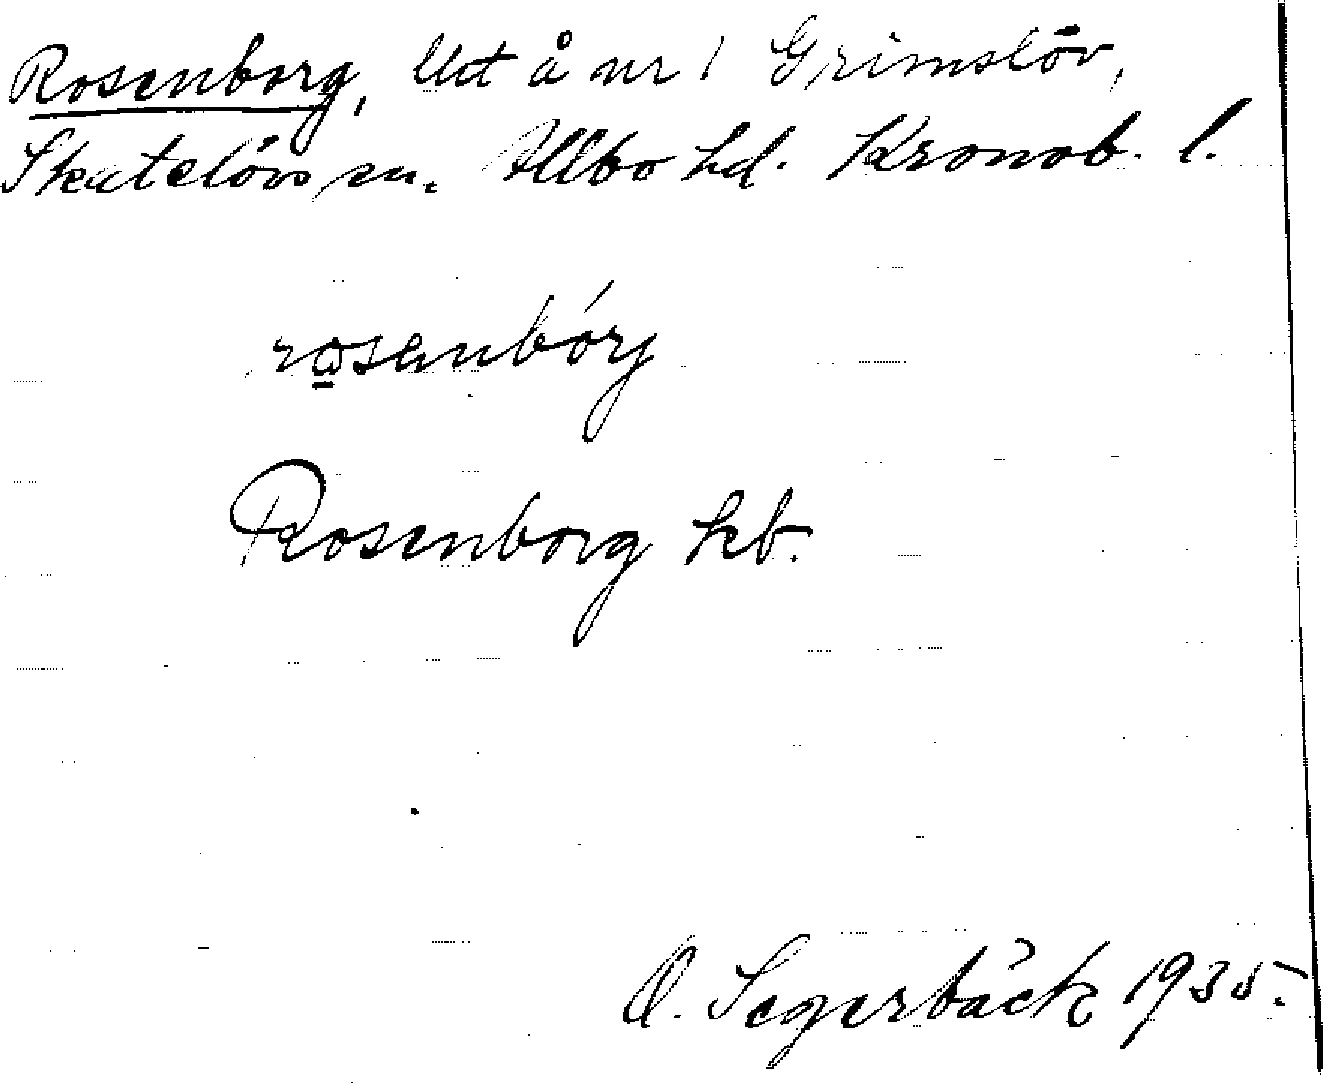 Rosenborg, Utt å nr 1 Grimslöv,
Skatelövs sn. Allbo hd. Kronob. l.
rosanbórj
Rosenborg hb.
O. Segerbäck 1935.